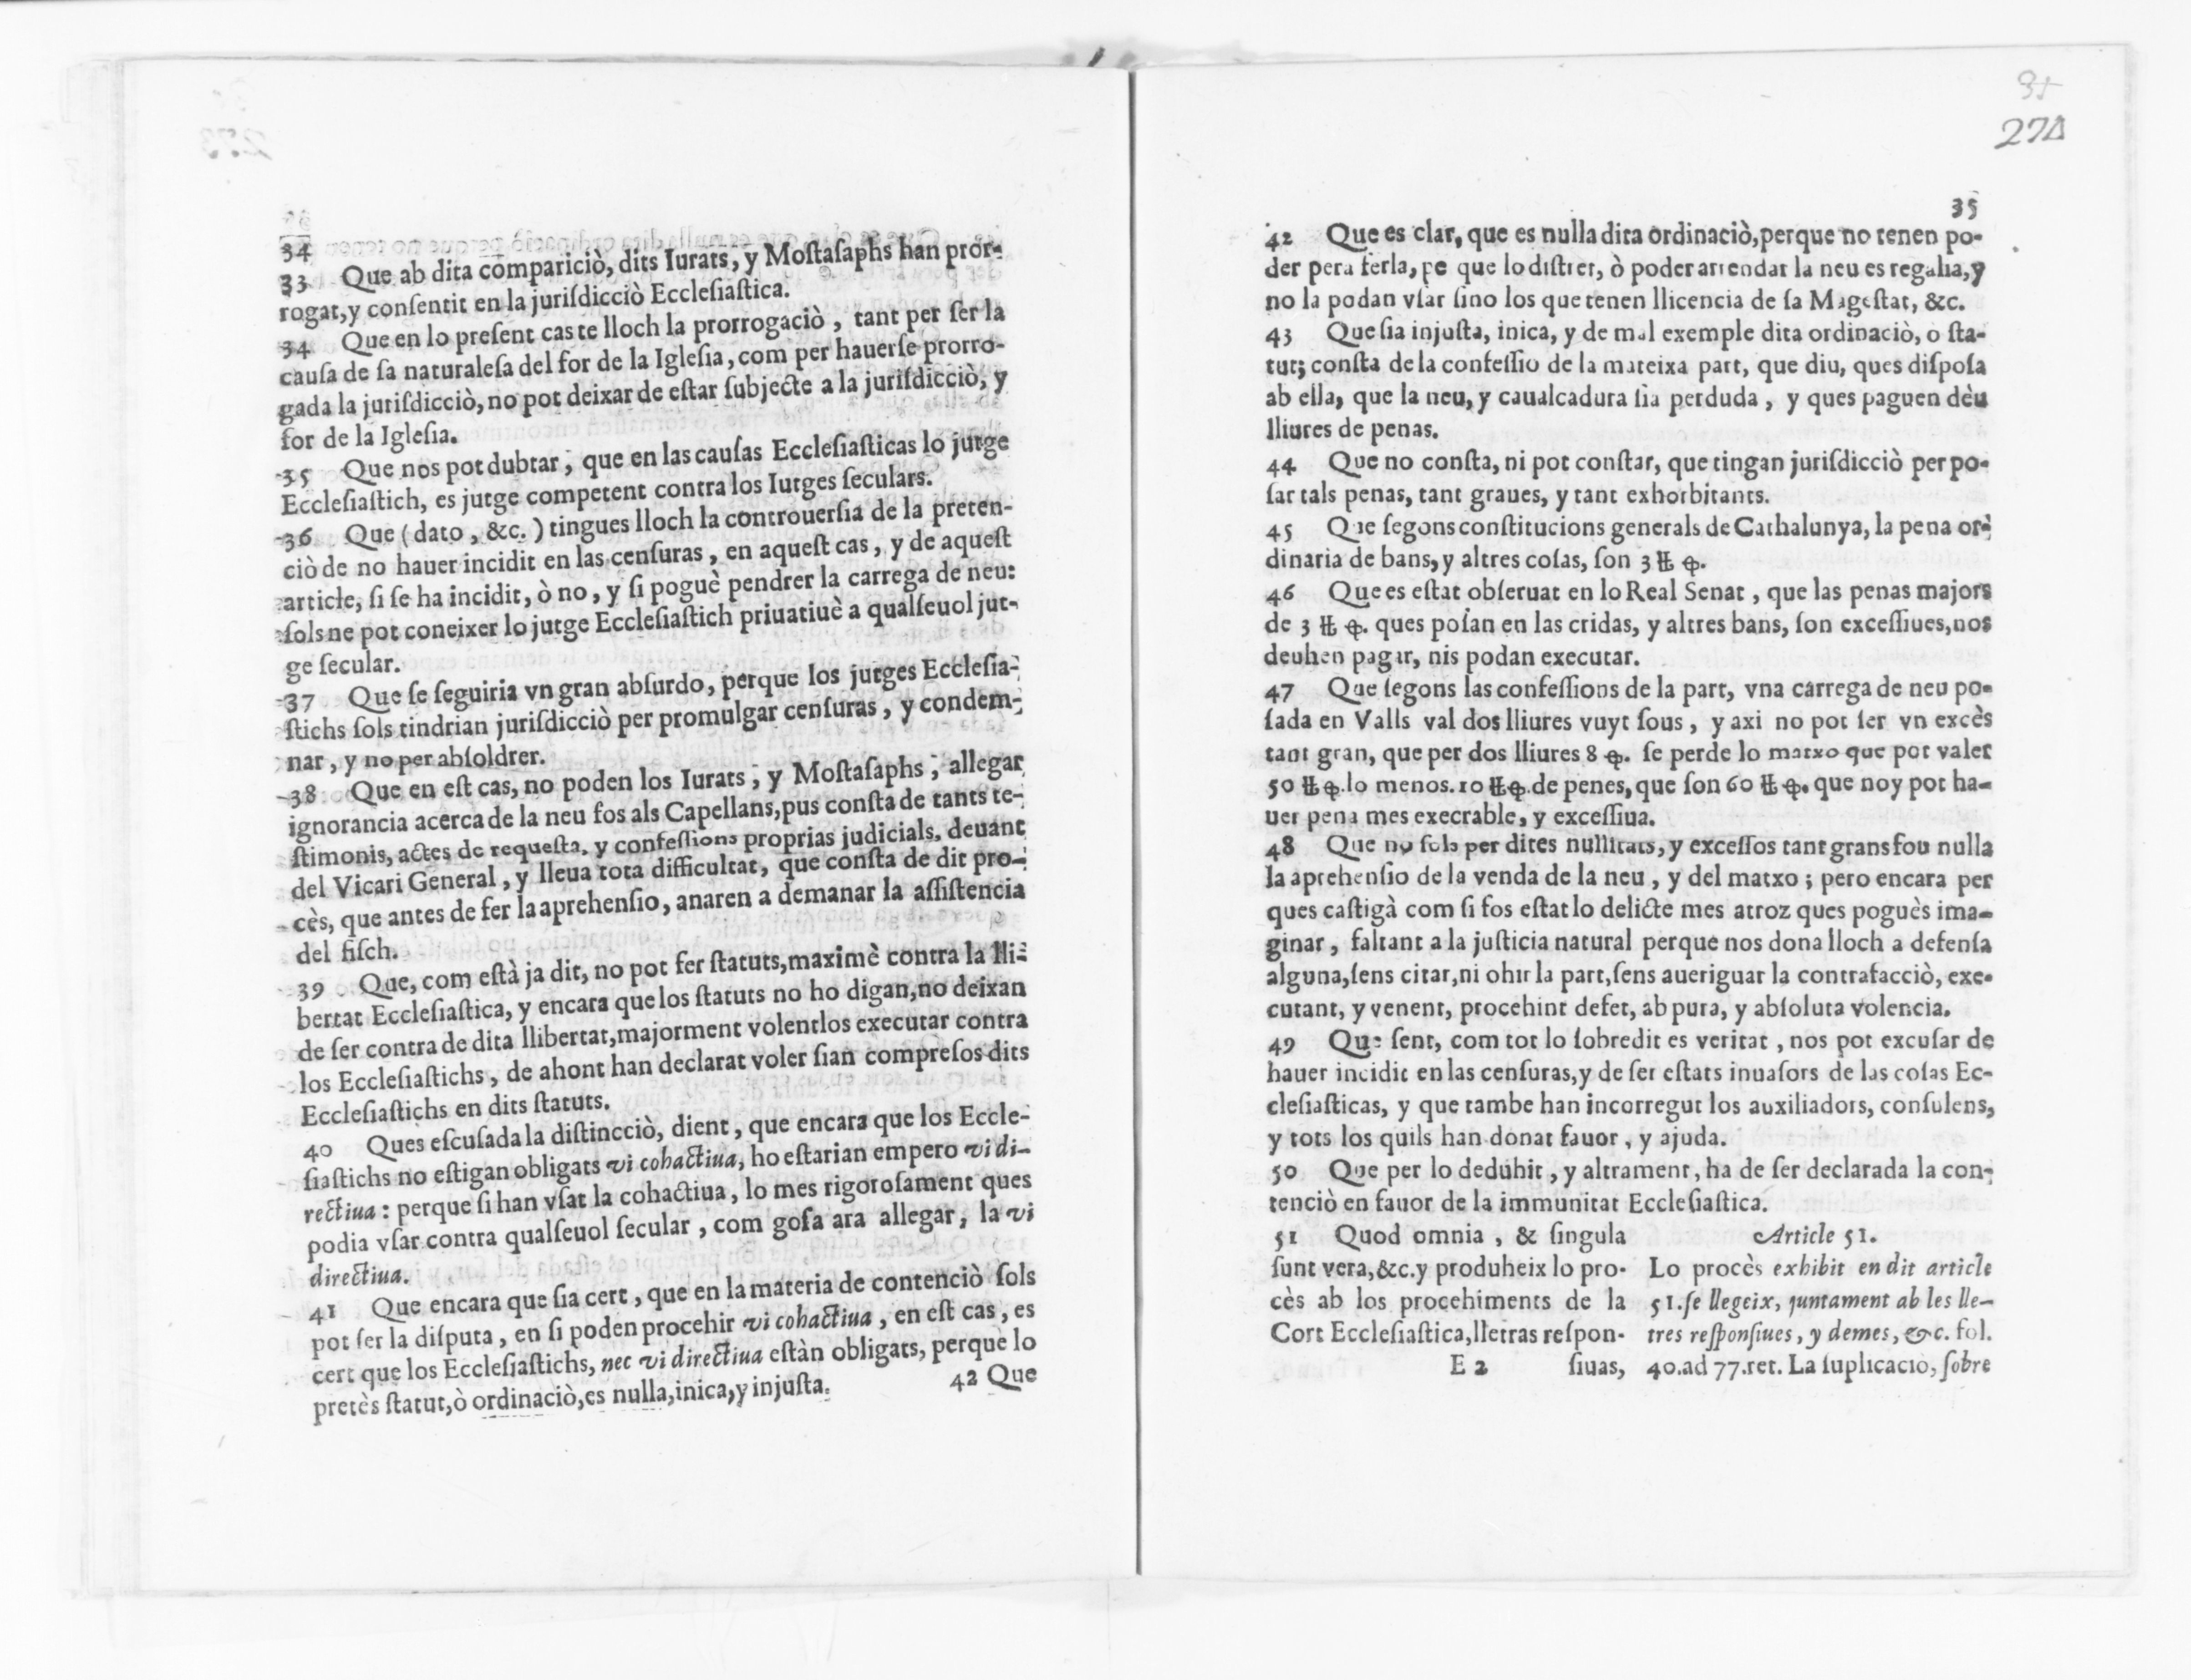 34
33 Que ab dita compariciò, dits Iurats, y Moſtaſaphs han pror-
rogat,y conſentit en la juriſdicciò Eccleſiaſtica.
34 Que en lo preſent cas te lloch la prorrogaciò, tant per ſer la
cauſa de ſa naturaleſa del for de la Igleſia, com per hauerſe prorro-
gada la juriſdicciò, no pot deixar de eſtar ſubjecte a la juriſdicciò, y
for de la Igleſia.
35 Que nos pot dubtar, que en las cauſas Eccleſiaſticas lo jutge
Eccleſiaſtich, es jutge competent contra los Iutges ſeculars.
36 Que (dato, &c.) tingues lloch la controuerſia de la preten-
ciò de no hauer incidit en las cenſuras, en aqueſt cas, y de aqueſt
article, ſi ſe ha incidit, ò no, y ſi poguè pendrer la carrega de neu:
ſols ne pot coneixer lo jutge Eccleſiaſtich priuatiuè a qualſeuol jut-
ge ſecular.
37 Que ſe ſeguiria vn gran abſurdo, perque los jutges Eccleſia-
ſtichs ſols tindrian juriſdicciò per promulgar cenſuras, y condem-
nar, y no per abſoldrer.
38 Que en eſt cas, no poden los Iurats, y Moſtaſaphs, allegar
ignorancia acerca de la neu fos als Capellans, pus conſta de tants te-
ſtimonis, actes de requeſta, y confeſſions proprias judicials, deuant
del Vicari General, y lleua tota difficultat, que conſta de dit pro-
cès, que antes de fer la aprehenſio, anaren a demanar la aſſiſtencia
del fiſch.
39 Que, com eſtà ja dit, no pot fer ſtatuts, maximè contra la lli-
bertat Eccleſiaſtica, y encara que los ſtatuts no ho digan, no deixan
de ſer contra de dita llibertat, majorment volentlos executar contra
los Eccleſiaſtichs, de ahont han declarat voler ſian compreſos dits
Eccleſiaſtichs en dits ſtatuts.
40 Ques eſcuſada la diſtincciò, dient, que encara que los Eccle-
ſiaſtichs no eſtigan obligats vi cohactiua, ho eſtarian empero vi di-
rectiua: perque ſi han vſat la cohactiua, lo mes rigoroſament ques
podia vſar contra qualſeuol ſecular, com goſa ara allegar, la vi
directiua.
41 Que encara que ſia cert, que en la materia de contenciò ſols
pot ſer la diſputa, en ſi poden procehir vi cohactiua, en eſt cas, es
cert que los Eccleſiaſtichs, nec vi directiua eſtàn obligats, perque lo
pretès ſtatut, ò ordinaciò, es nulla, inica, y injuſta.
42 Que
35
274
35
42 Que es clar, que es nulla dita ordinaciò, perque no tenen po-
der pera ferla, pe que lo diſtret, ò poder arrendar la neu es regalia, y
no la podan vſar ſino los que tenen llicencia de ſa Mageſtat, &c.
43 Que ſia injuſta, inica, y de mal exemple dita ordinaciò, o ſta-
tut; conſta de la confeſſio de la mateixa part, que diu, ques diſpoſa
ab ella, que la neu, y caualcadura ſia perduda, y ques paguen dèu
lliures de penas.
44 Que no conſta, ni pot conſtar, que tingan juriſdicciò per po-
ſar tals penas, tant graues, y tant exhorbitants.
45 Que ſegons conſtitucions generals de Cathalunya, la pena or-
dinaria de bans, y altres coſas, ſon 3 ℔ ꝗ.
46 Que es eſtat obſeruat en lo Real Senat, que las penas majors
de 3 ℔ ꝗ. ques poſan en las cridas, y altres bans, ſon exceſſiues, nos
deuhen pagar, nis podan executar.
47 Que ſegons las confeſſions de la part, vna carrega de neu po-
ſada en Valls val dos lliures vuyt ſous, y axi no pot ſer vn excès
tant gran, que per dos lliures 8 ꝗ. ſe perde lo matxo que pot valer
50 ℔ ꝗ. lo menos. 10 ℔ ꝗ. de penes, que ſon 60 ℔ ꝗ. que noy pot ha-
uer pena mes execrable, y exceſſiua.
48 Que no ſols per dites nullitats, y exceſſos tant grans fou nulla
la aprehenſio de la venda de la neu, y del matxo; pero encara per
ques caſtigà com ſi fos eſtat lo delicte mes atroz ques poguès ima-
ginar, faltant a la juſticia natural perque nos dona lloch a defenſa
alguna, ſens citar, ni ohir la part, ſens aueriguar la contrafacciò, exe-
cutant, y venent, procehint defet, ab pura, y abſoluta volencia.
49 Que ſent, com tot lo ſobredit es veritat, nos pot excuſar de
hauer incidit en las cenſuras, y de ſer eſtats inuaſors de las coſas Ec-
cleſiaſticas, y que tambe han incorregut los auxiliadors, conſulens,
y tots los quils han donat fauor, y ajuda.
50 Que per lo deduhit, y altrament, ha de ſer declarada la con-
tenciò en fauor de la immunitat Eccleſiaſtica.
51 Quod omnia, & ſingula
ſunt vera, &c. y produheix lo pro-
cès ab los procehiments de la
Cort Eccleſiaſtica, lletras reſpon-
E 2 ſiuas,
Article 51.
Lo procès exhibit en dit article
51. ſe llegeix, juntament ab les lle-
tres reſponſiues, y demes, &c. fol.
40. ad 77. ret. La ſuplicaciò, ſobre